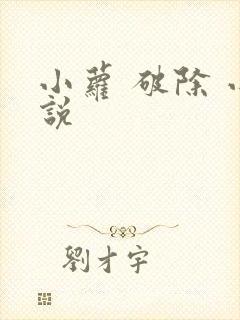 小蘿 破除
說
劉才宇